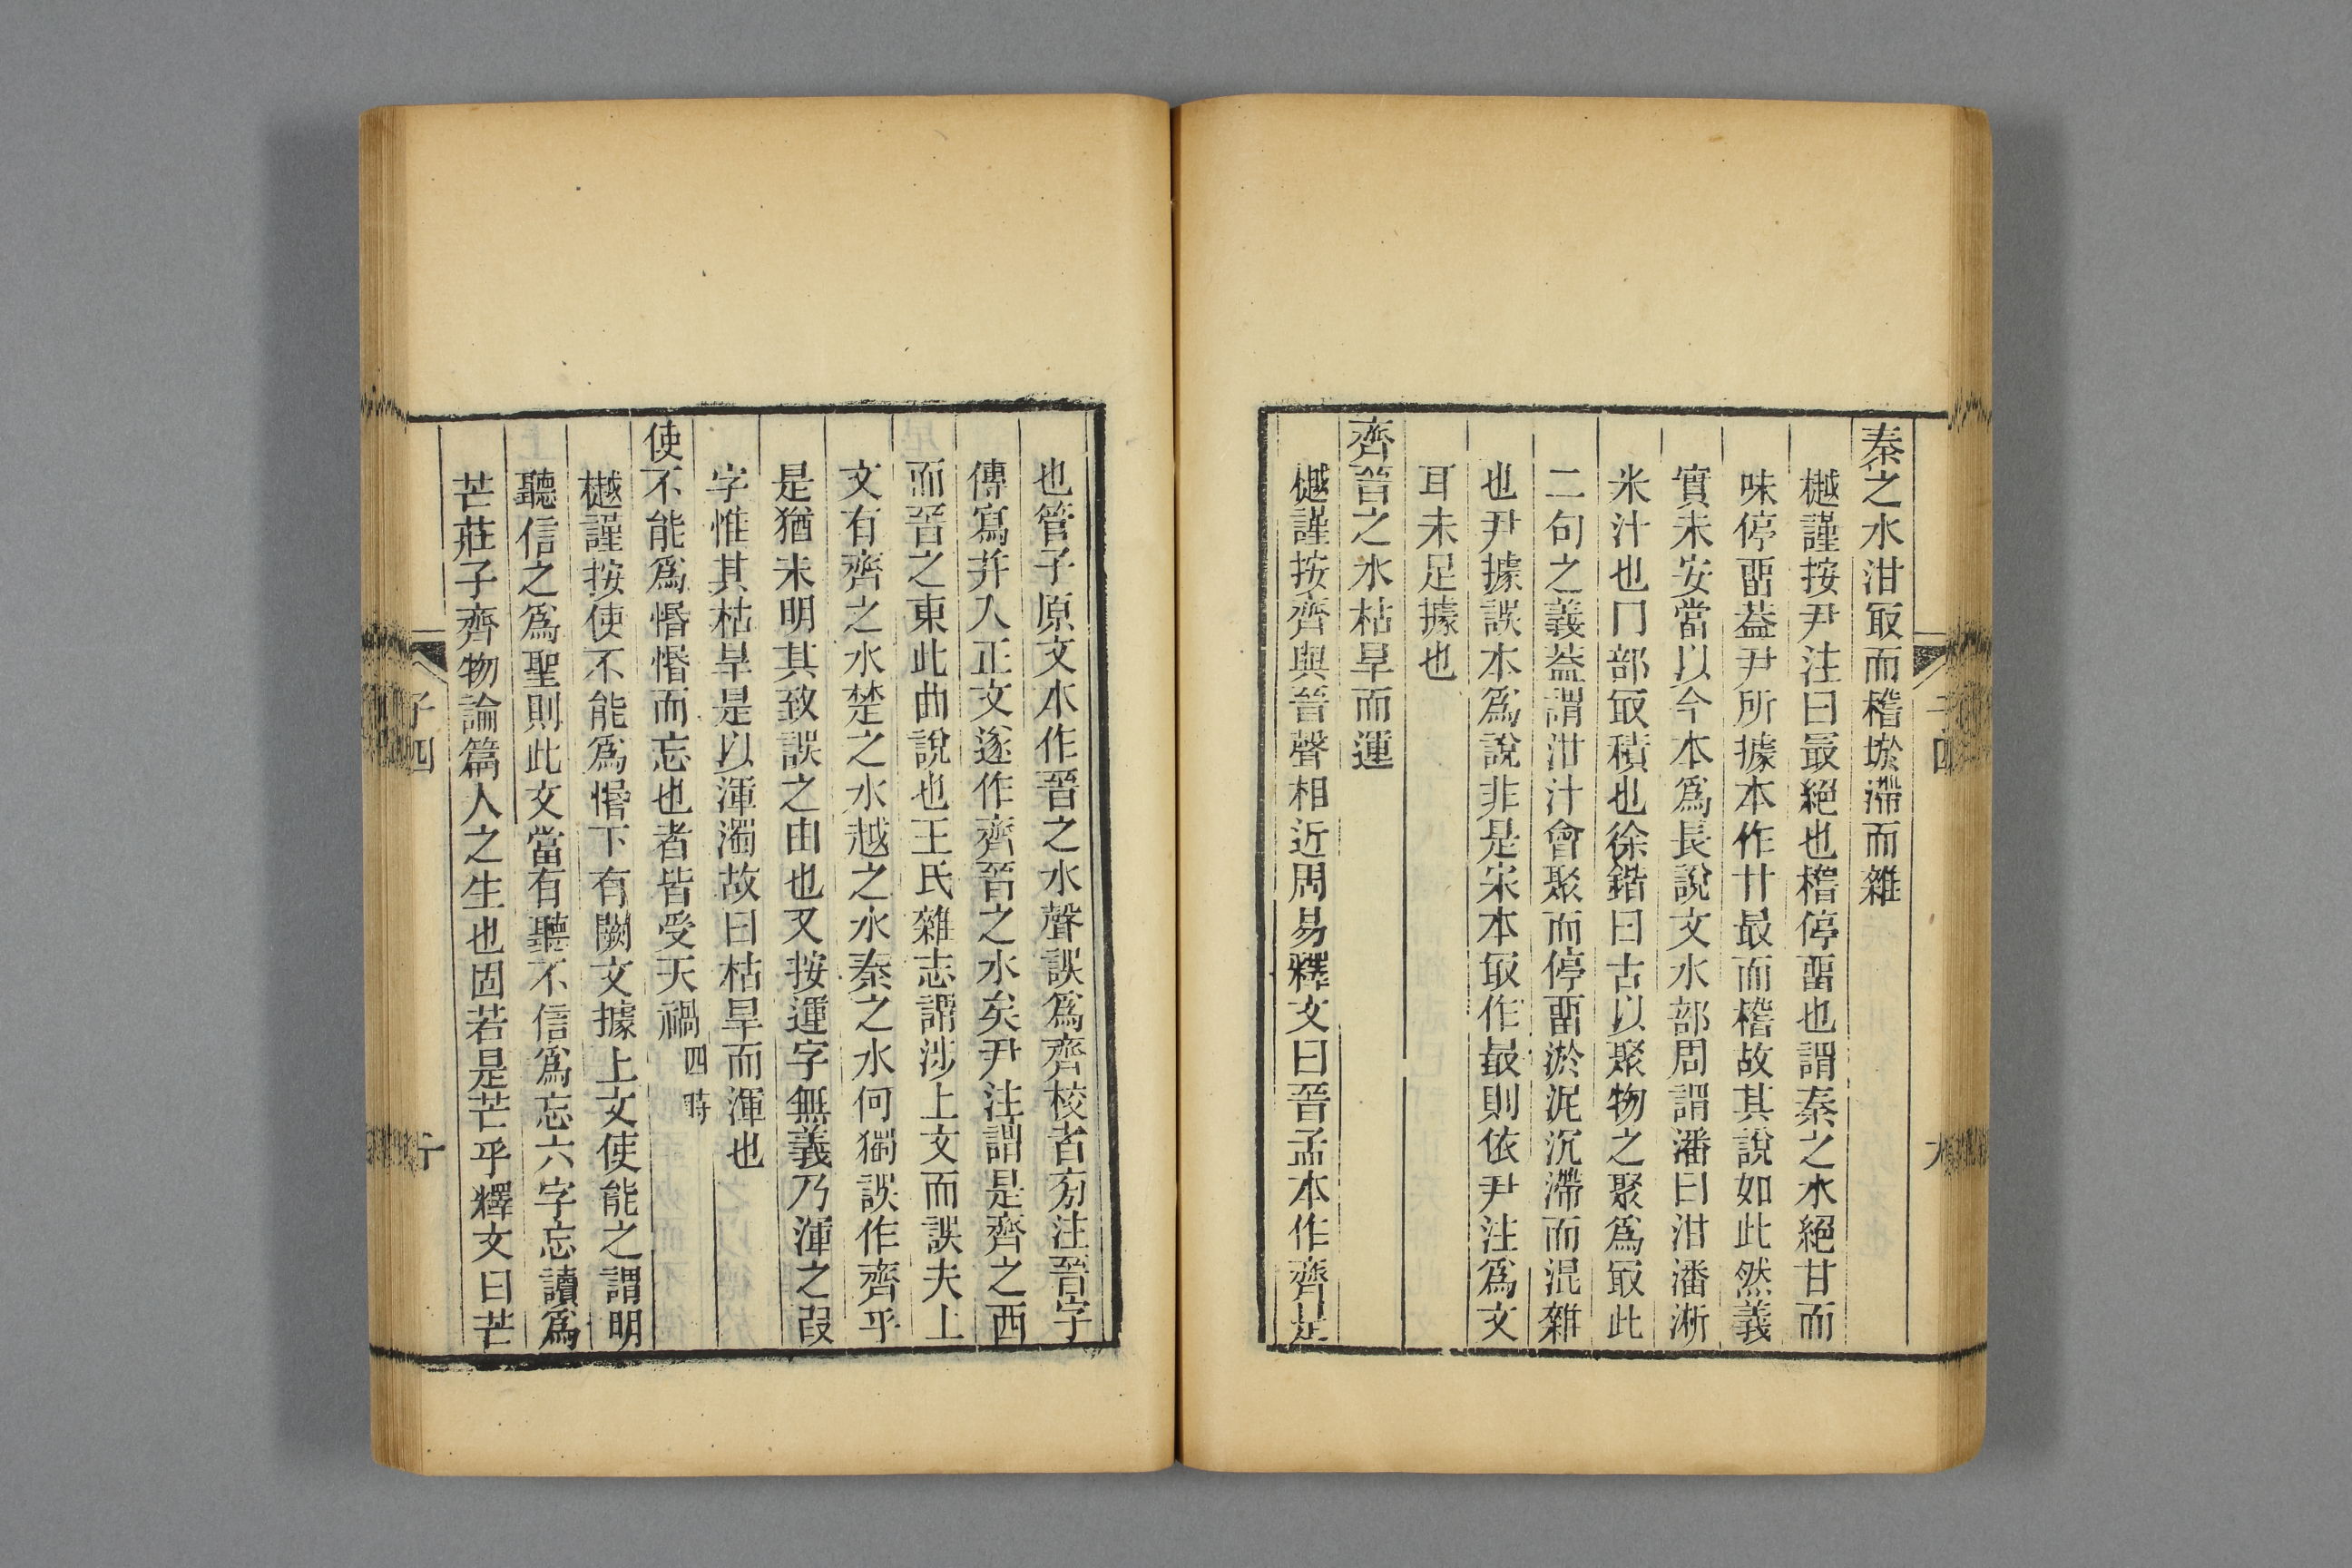 秦之水泔㝡而稽㳔滯而雜
樾謹按尹注曰最絕也稽停畱也謂秦之水絕甘而
味停畱葢尹所據本作甘最而稽故其說如此然義
實未安當以今本爲長說文水部周謂潘曰泔潘淅
米汁也冂部㝡積也徐鍇曰古以聚物之聚爲㝡此
二句之義葢謂泔汁會聚而停畱淤泥沉滯而混雜
也尹據誤本爲說非是宋本㝡作最則依尹注爲文
耳未足據也
齊晉之水枯旱而運
樾謹按齊與晉聲相近周易釋文曰晉孟本作齊是
也管子原文本作晉之水聲誤爲齊校者㫄注晉字
傳寫幷入正文遂作齊晉之水矣尹注謂是齊之西
而晉之東此曲說也王氏雜志謂涉上文而誤夫上
文有齊之水楚之水越之水秦之水何獨誤作齊乎
是猶未明其致誤之由也又按運字無義乃渾之叚
字惟其枯旱是以渾濁故曰枯旱而渾也
使不能爲惛惛而忘也者皆受天禍四時
樾謹按使不能爲惛下有闕文據上文使能之謂明
聽信之爲聖則此文當有聽不信爲忘六字忘讀爲
芒莊子齊物論篇人之生也固若是芒乎釋文曰芒
子四